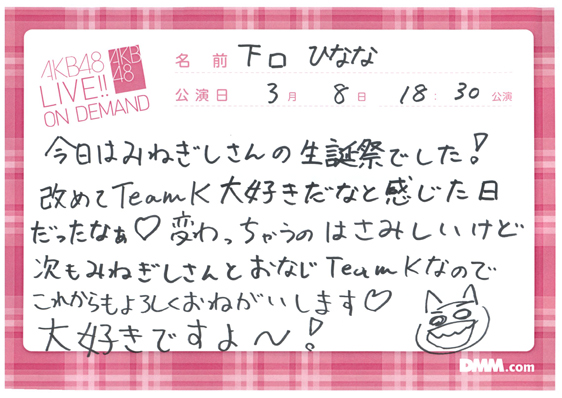 AKB48
LIVE!!
ON DEMAND
AKB
48
名前 下口 ひなな
公演日 3月 8日 18:30 公演
今日はみねぎしさんの生誕祭でした!
改めてTeamK大好きだなと感じた日
だったなぁ♡変わっちゃうのはさみしいけど
次もみねぎしさんとおなじTeamKなので
これからもよろしくおねがいします♡
大好きですよ〜!
DMM.com